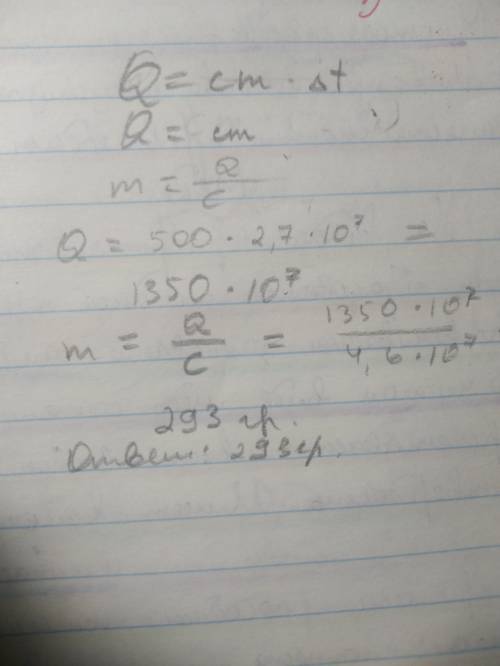 Q = cm · Δt
Q = cm
m = Q/c
Q = 500 · 2,7 · 10⁷ =
1350 · 10⁷
m = Q/c = 1350 · 10⁷/4,6 · 10⁷
293 гр.
Ответ: 293 гр.